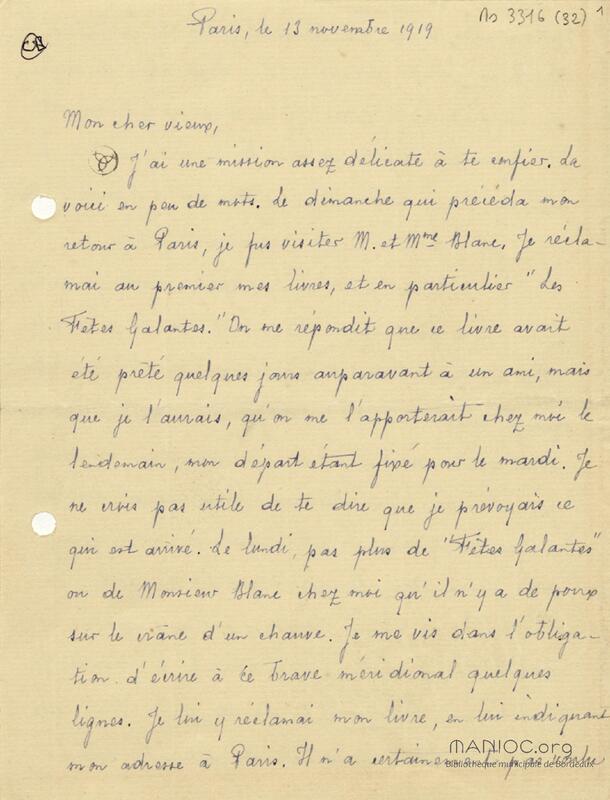 Ms 3316 (32) 1
Paris, le 13 novembre 1919
Mon cher vieux,
J'ai une mission assez délicate à te confier. La
voici en peu de mots. Le dimanche qui précéda mon
retour à Paris, je fus visiter M. et Mme Blanc. Je récla-
mai au premier mes livres, et en particulier "Les
Fêtes Galantes." On me répondit que ce livre avait
été prêté quelques jours auparavant à un ami, mais
que je l'aurais, qu'on me l'apporterait chez moi le
lendemain, mon départ étant fixé pour le mardi. Je
ne crois pas utile de te dire que je prévoyais ce
qui est arrivé. Le lundi, pas plus de "Fêtes Galantes"
ou de Monsieur Blanc chez moi qu'il n'y a de poux
sur le crâne d'un chauve. Je me vis dans l'obliga-
tion d'écrire à ce brave méridional quelques
lignes. Je lui y réclamai mon livre, en lui indiquant
mon adresse à Paris. Il n'a certainement pas
MANIOC.org
Bibliothèque municipale de Bordeaux